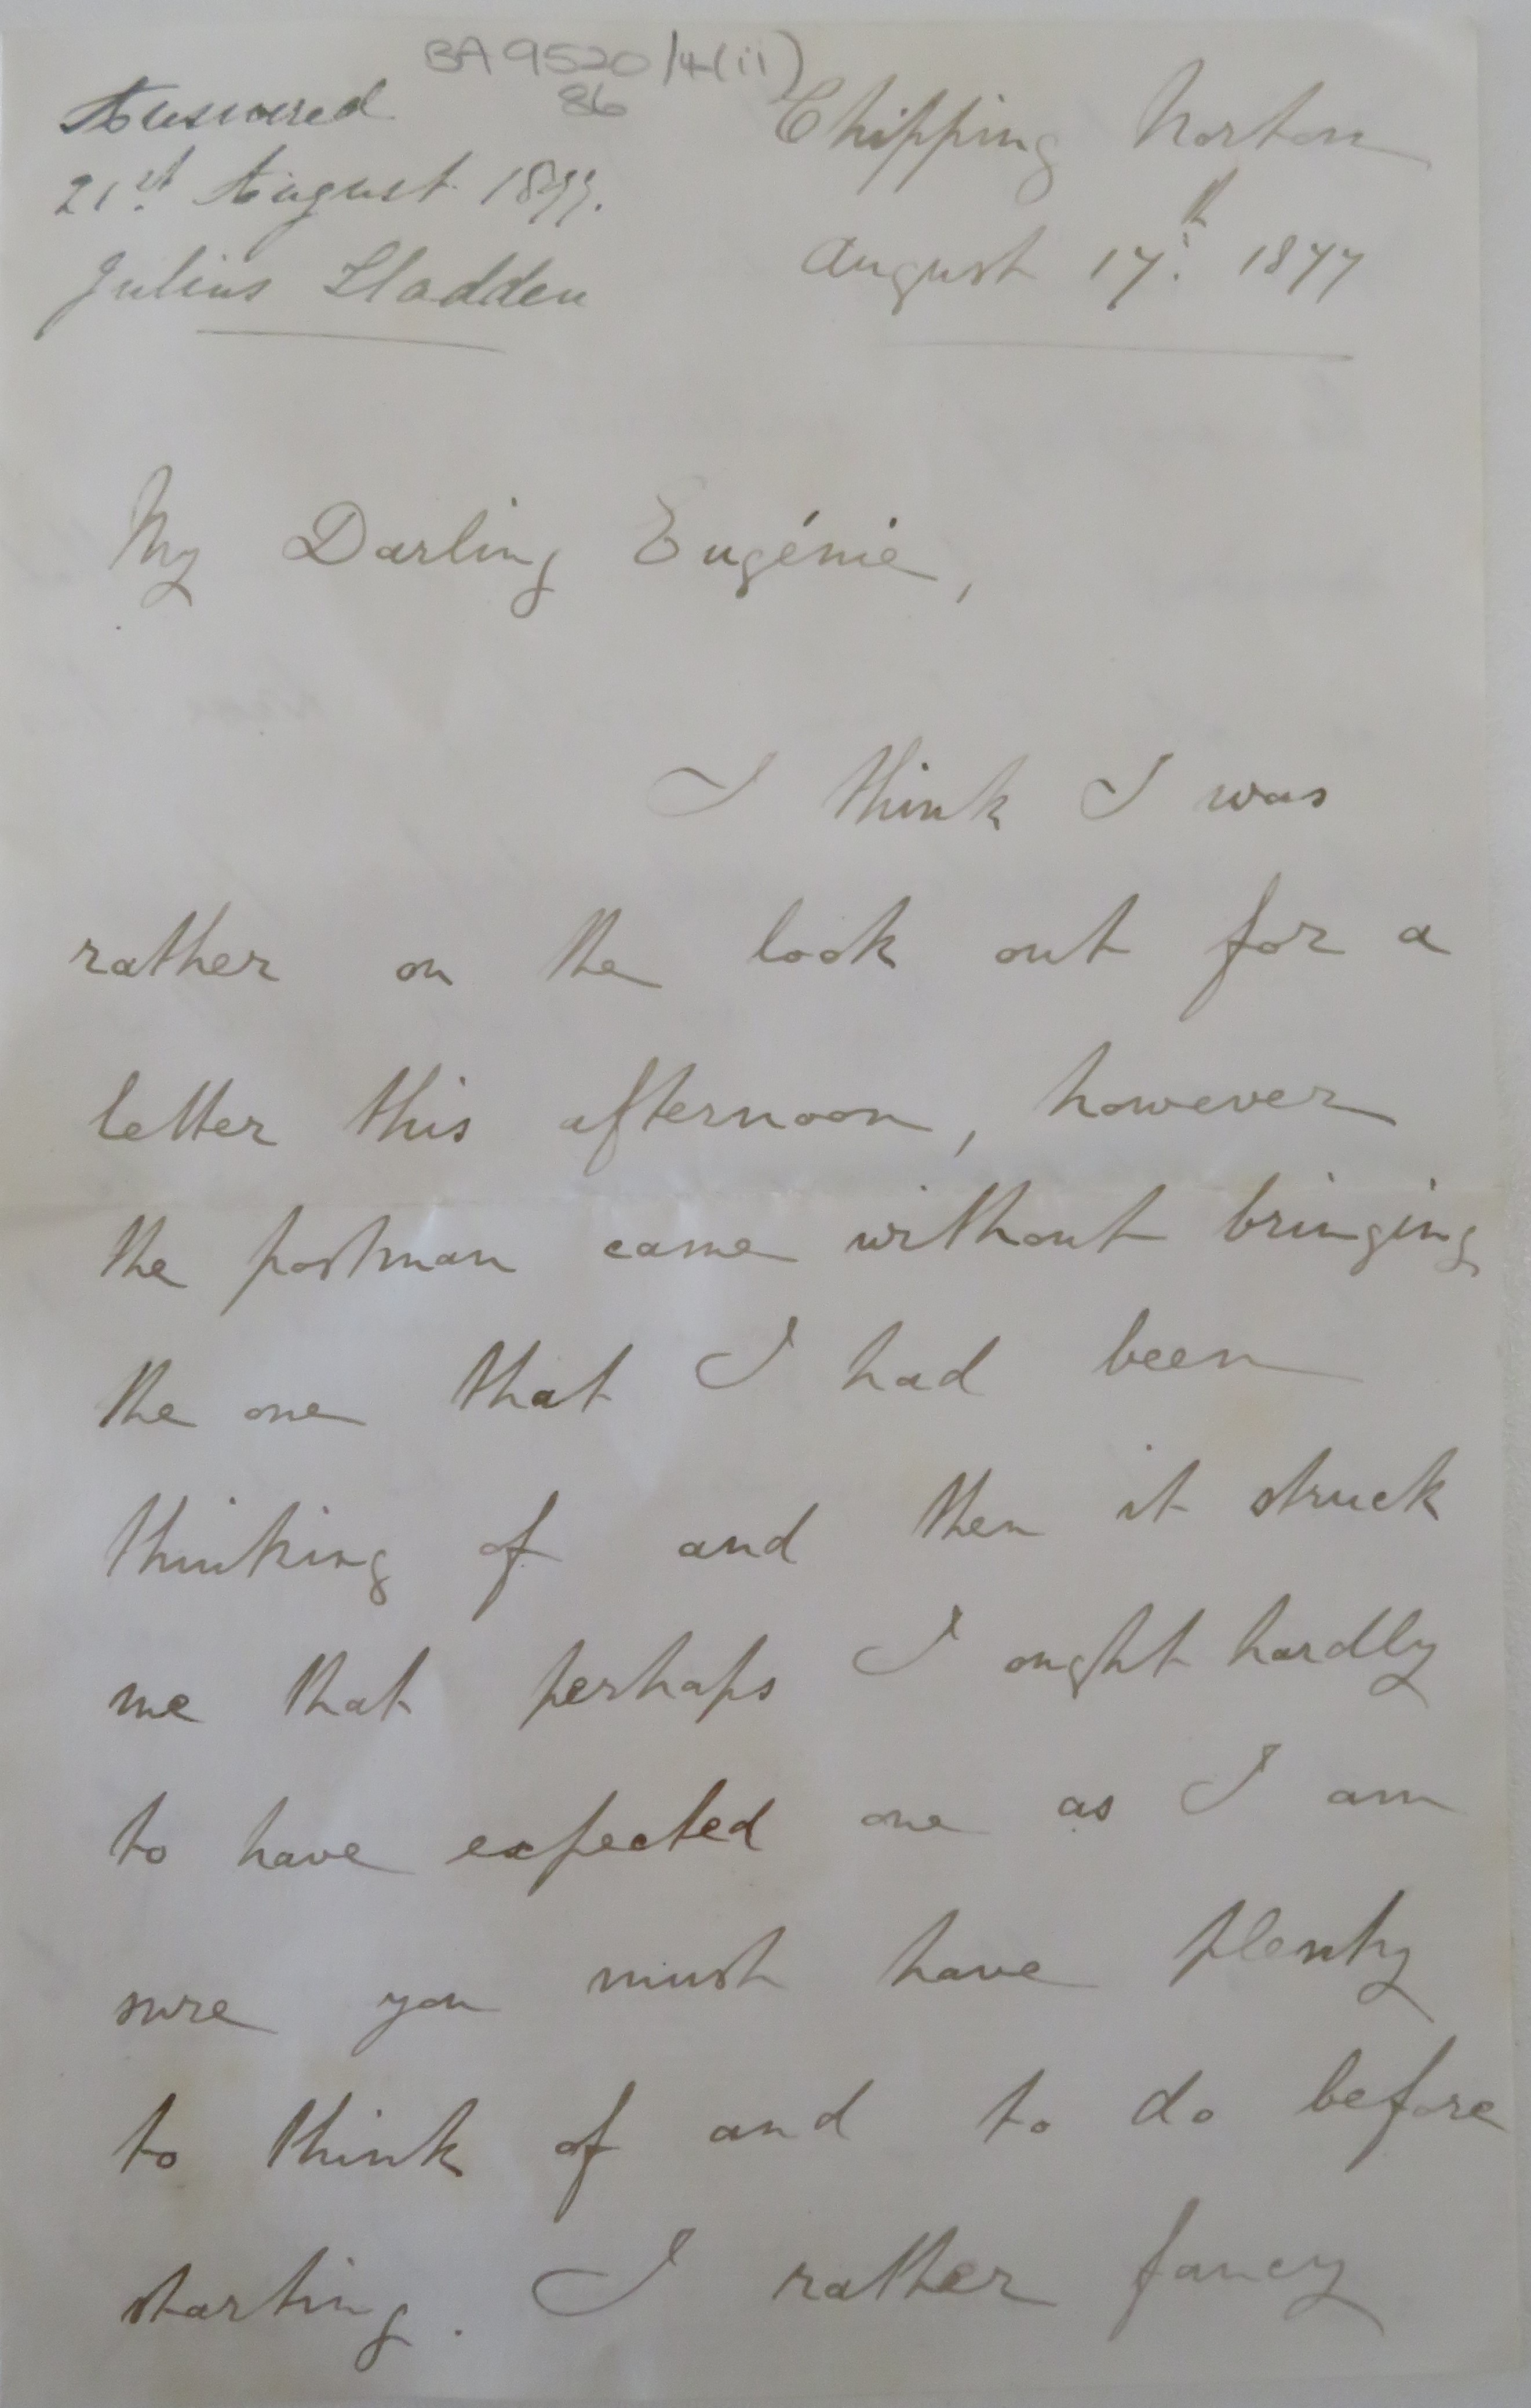 BA 9520/4(ii)
86
Answered
21st August 1877.
Julius Sladden
Chipping Norton
August 17th. 1877
My Darling Eugénie,
I think I was
rather on the look out for a
letter this afternoon, however
the postman came without bringing
the one that I had been
thinking of and then it struck
me that perhaps I ought hardly
to have expected one as I am
sure you must have plenty
to think of and to do before
starting. I rather fancy